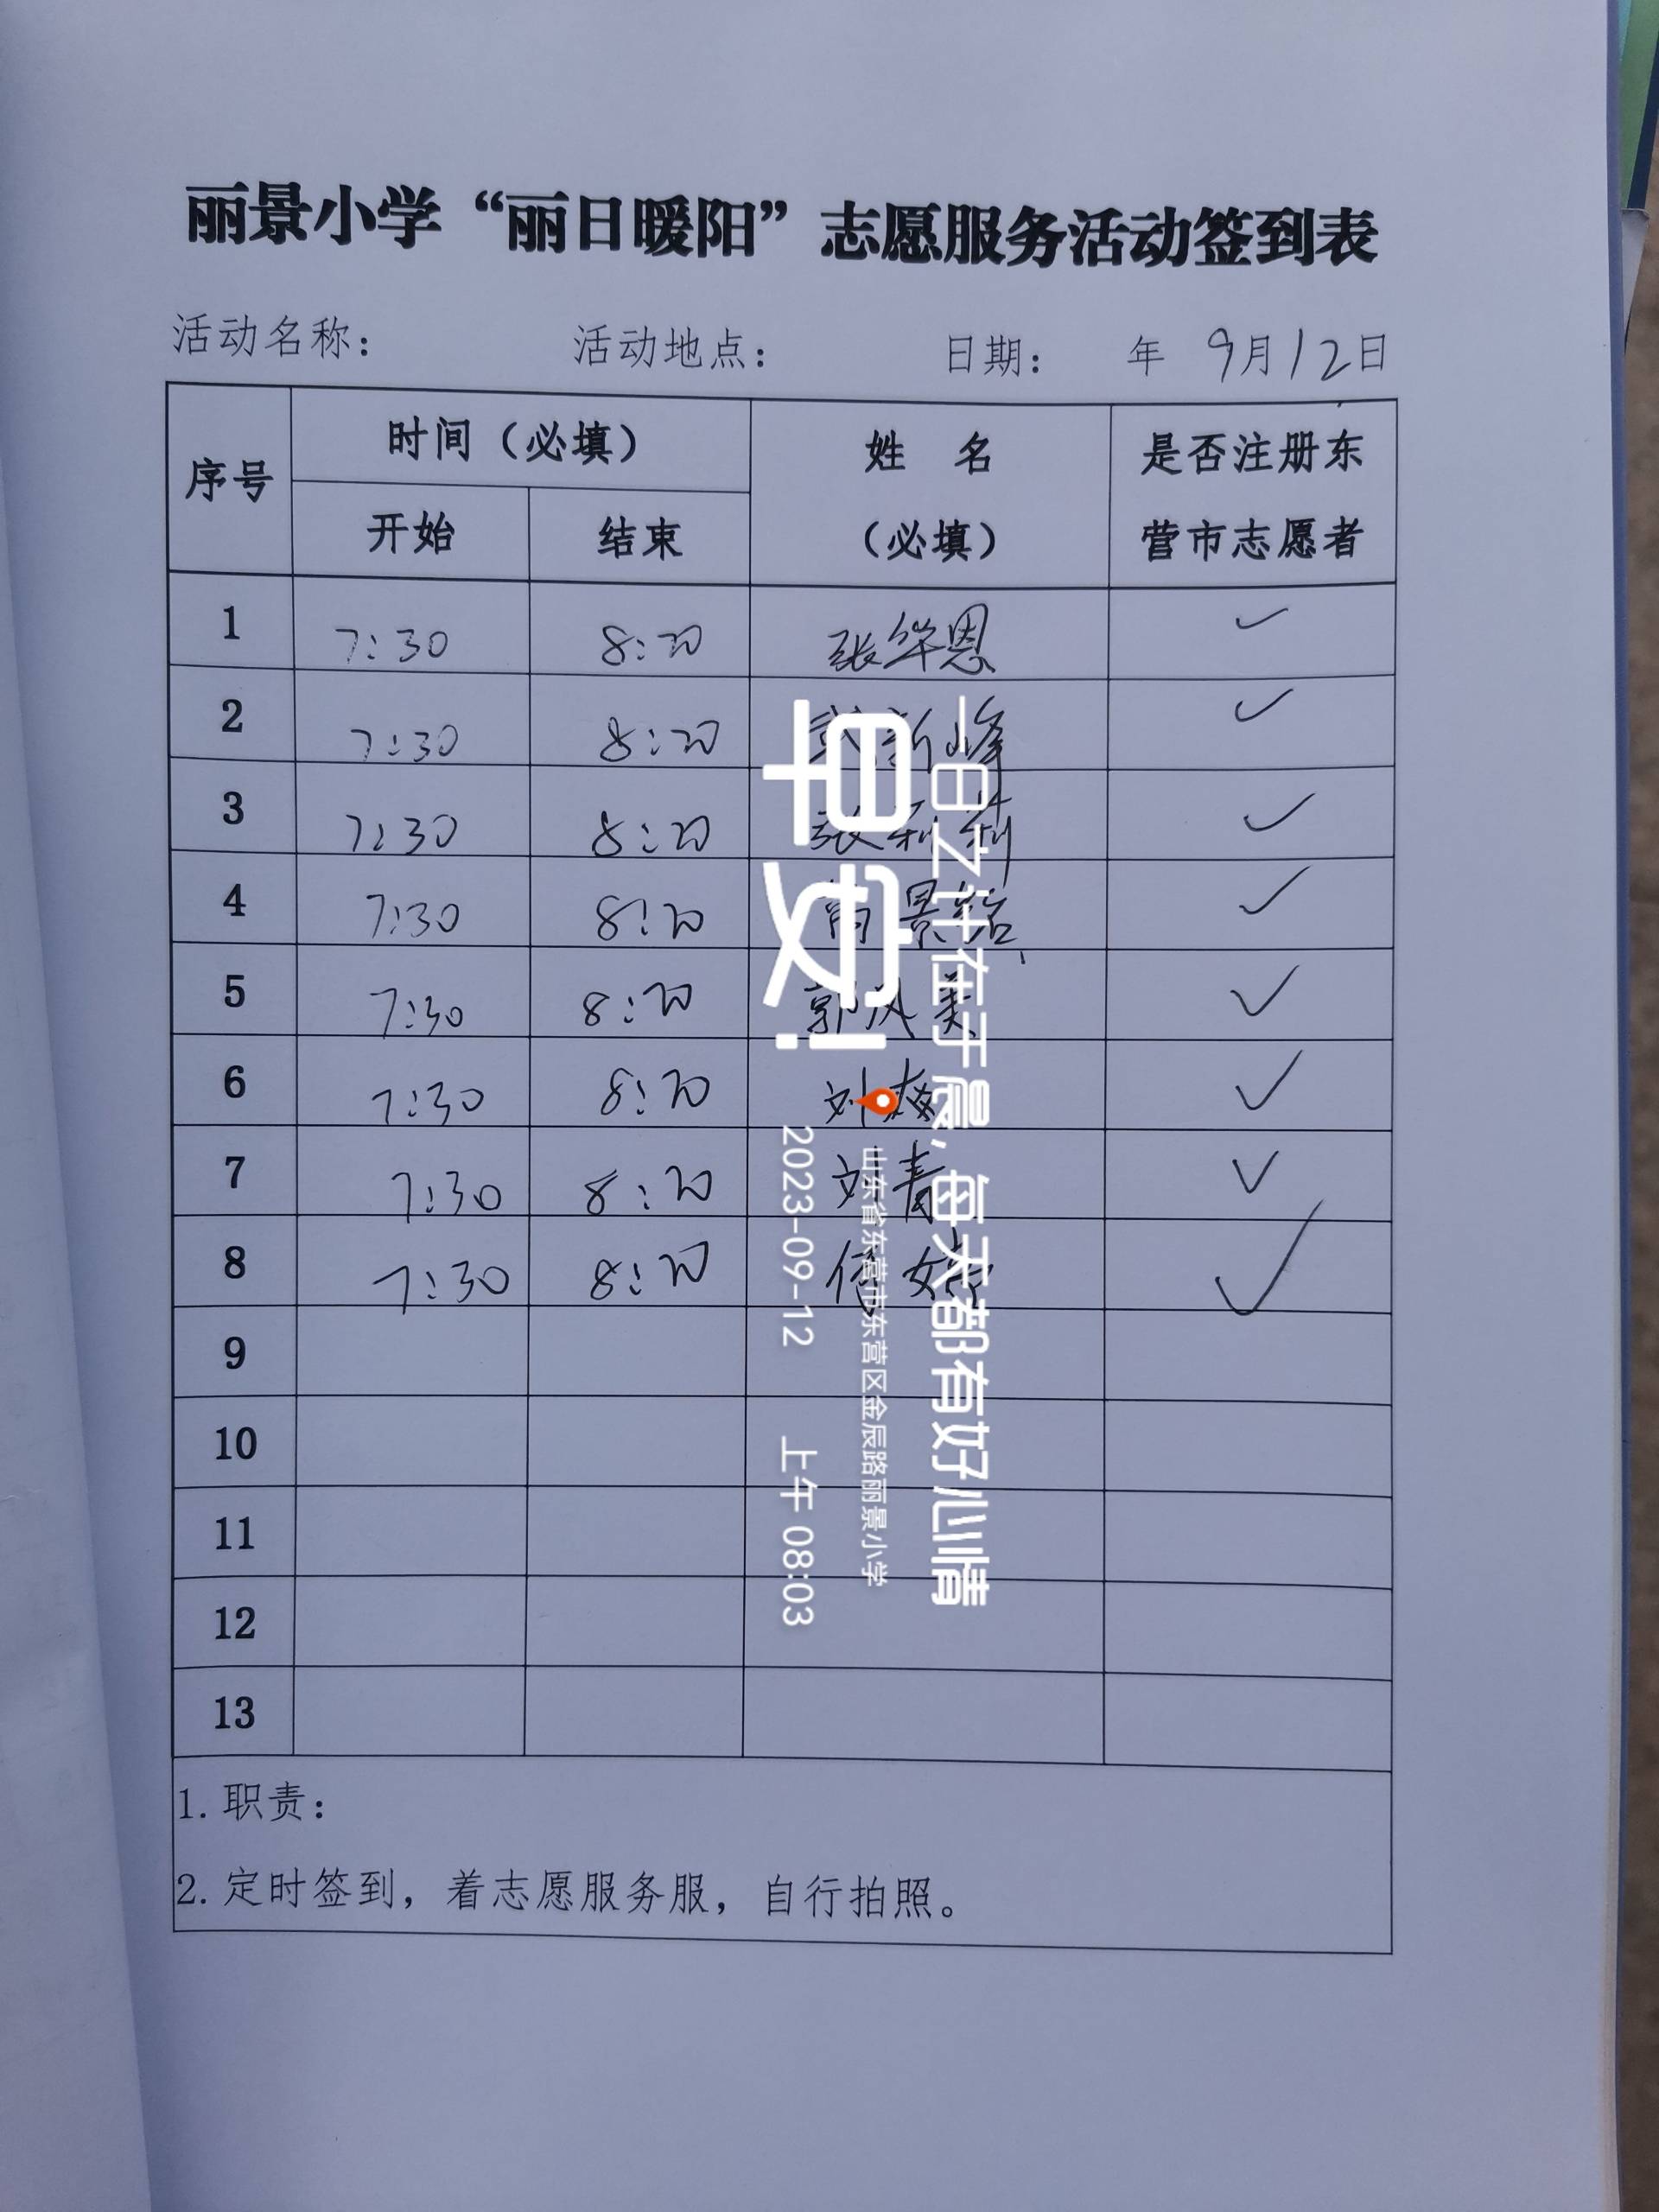 丽景小学“丽日暖阳”志愿服务活动签到表
活动名称： 活动地点： 日期： 年 9月12日
序号 时间（必填） 姓 名（必填） 是否注册东营市志愿者
开始 结束
1 7:30 8:20 张华恩 ✓
2 7:30 8:20 新峰 ✓
3 7:30 8:20 张利莉 ✓
4 7:30 8:20 景 ✓
5 7:30 8:20 郭凤美 ✓
6 7:30 8:20 刘梅 ✓
7 7:30 8:20 刘青 ✓
8 7:30 8:20 婷 ✓
9
10
11
12
13
1. 职责：
2. 定时签到，着志愿服务服，自行拍照。
一日之计在于晨，每天都有好心情
早安!
山东省东营市东营区金辰路丽景小学
2023-09-12 上午 08:03